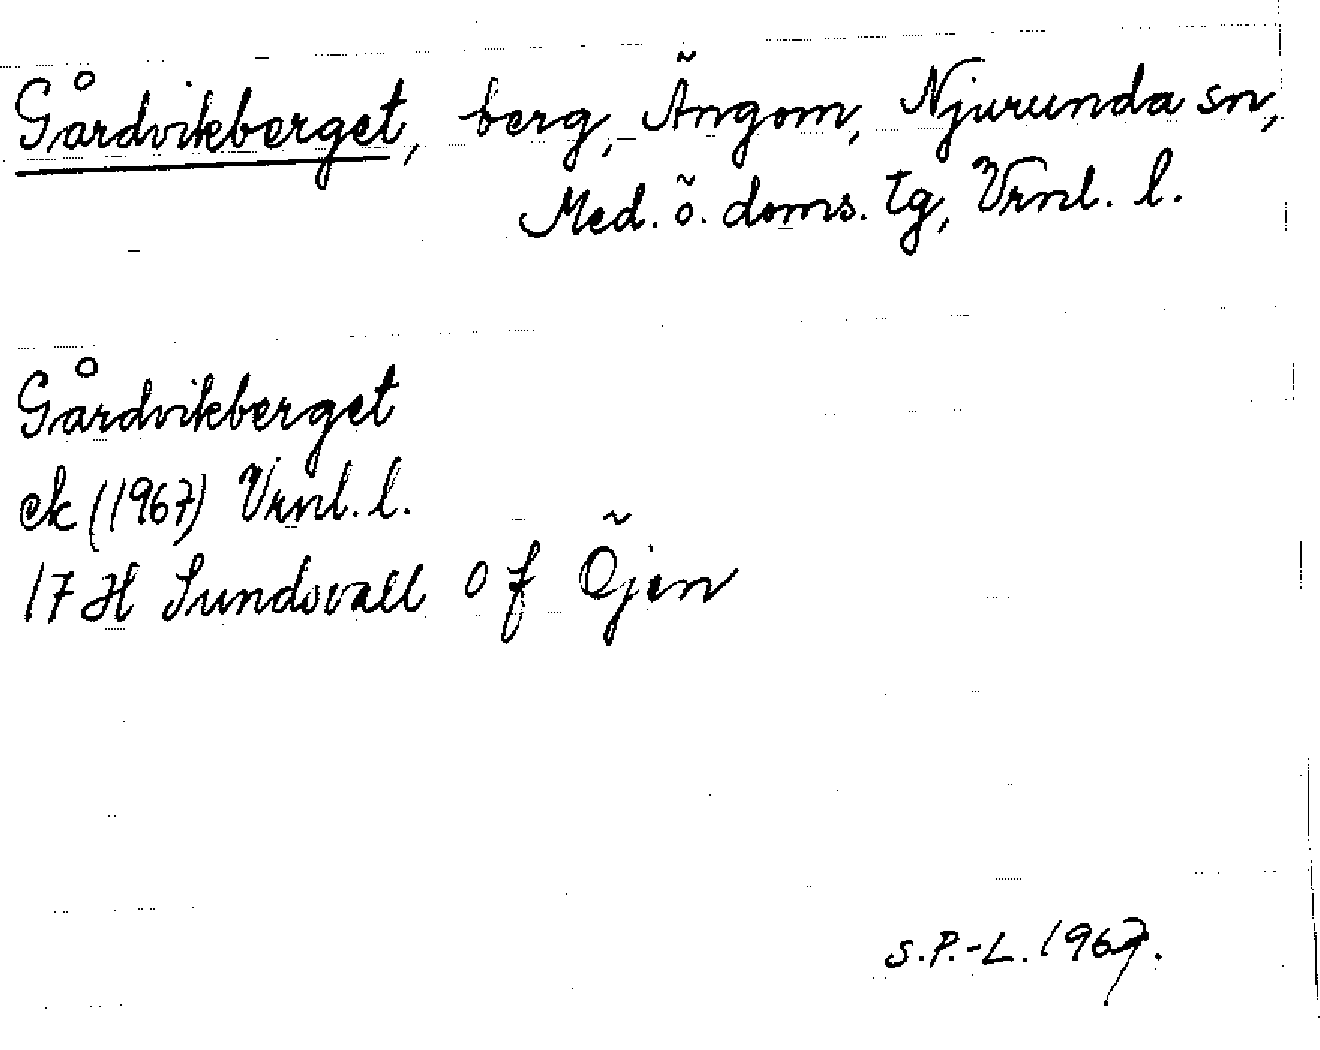 Gårdvikberget, berg, Ängom, Njurunda sn,
Med. ö. doms. tg, Vrnl. l.
Gårdvikberget
ek (1967) Vrnl. l.
17 H Sundsvall o f Öjen
S.P.-L. 1967.